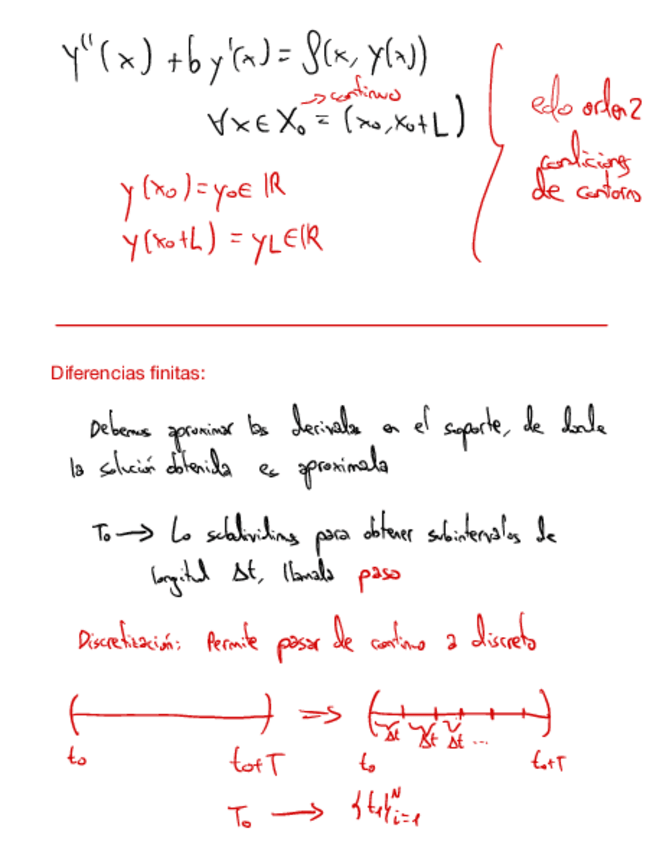 y''(x) + b y'(x) = f(x, y(x))
→ continuo
∀x ∈ X₀ = (x₀, x₀+L)
y(x₀) = y₀ ∈ ℝ
y(x₀+L) = y_L ∈ ℝ
edo orden 2
condiciones
de contorno
Diferencias finitas:
Debemos aproximar las derivadas en el soporte, de donde
la solución obtenida es aproximada
T₀ → Lo subdividimos para obtener subintervalos de
longitud Δt, llamada paso
Discretización: Permite pasar de continuo a discreto
( ) ⇒ ( )
Δt Δt Δt ...
t₀ t₀+T t₀ t₀+T
T₀ → {tᵢ}ᴺᵢ₌₁